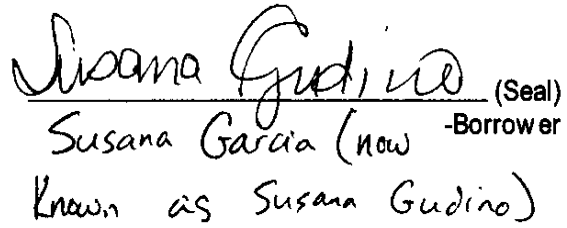 Susana Gudino (Seal)
Susana Garcia (now -Borrower
Known as Susana Gudino)